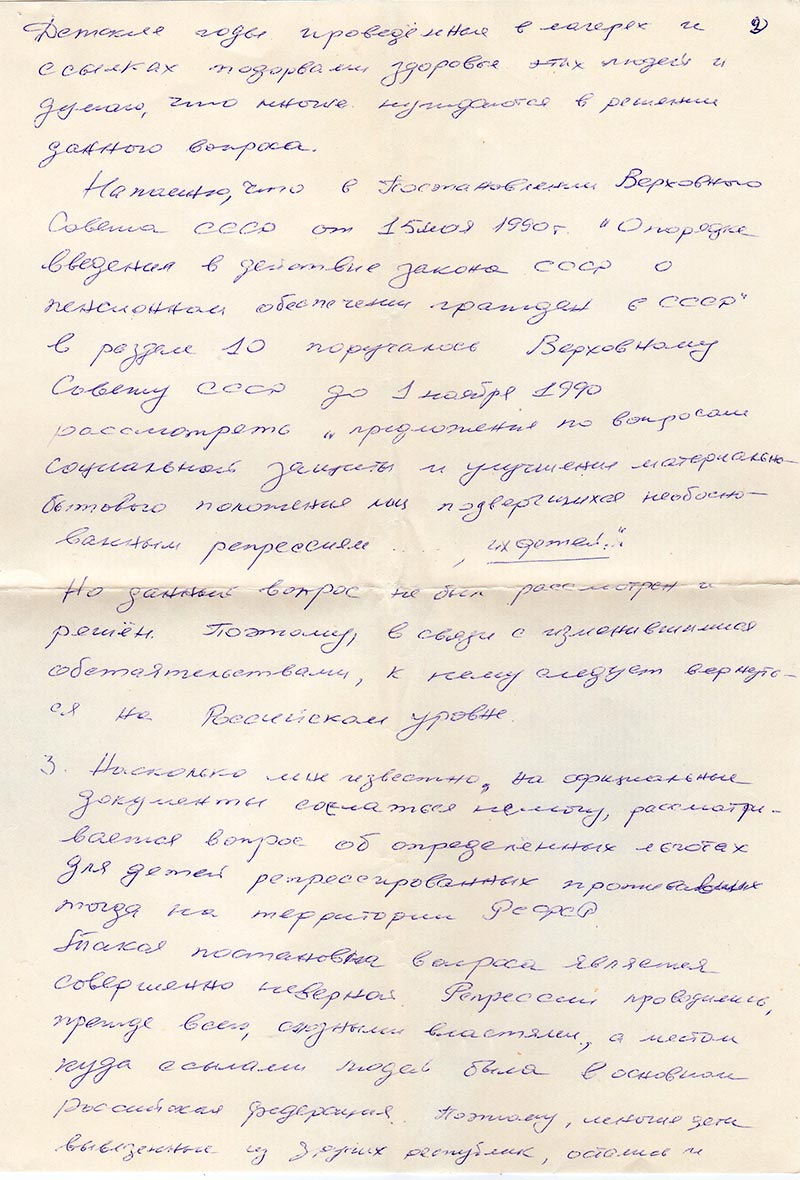 2)
Детские годы проведённые в лагерях и
ссылках подорвали здоровье этих людей и
думаю, что многие нуждаются в решении
данного вопроса.
Напомню, что в Постановлении Верховного
Совета СССР от 15 мая 1990г. "О порядке
введения в действие закона СССР о
пенсионном обеспечении граждан в СССР"
в разделе 10 поручалось Верховному
Совету СССР до 1 ноября 1990
рассмотреть "предложения по вопросам
социальной защиты и улучшения материально-
бытового положения лиц подвергшихся необосно-
ванным репрессиям ... , их детей..."
Но данный вопрос не был рассмотрен и
решён. Поэтому, в связи с изменившимися
обстоятельствами, к нему следует вернуть-
ся на Российском уровне.
3. Насколько мне известно, на официальные
документы сослаться не могу, рассматри-
вается вопрос об определённых льготах
для детей репрессированных проживавших
тогда на территории РСФСР
Такая постановка вопроса является
совершенно неверной. Репрессии проводились,
прежде всего, союзными властями, а местом
куда ссылали людей была в основном
Российская федерация. Поэтому, многие дети
вывезенные из других республик, остались и